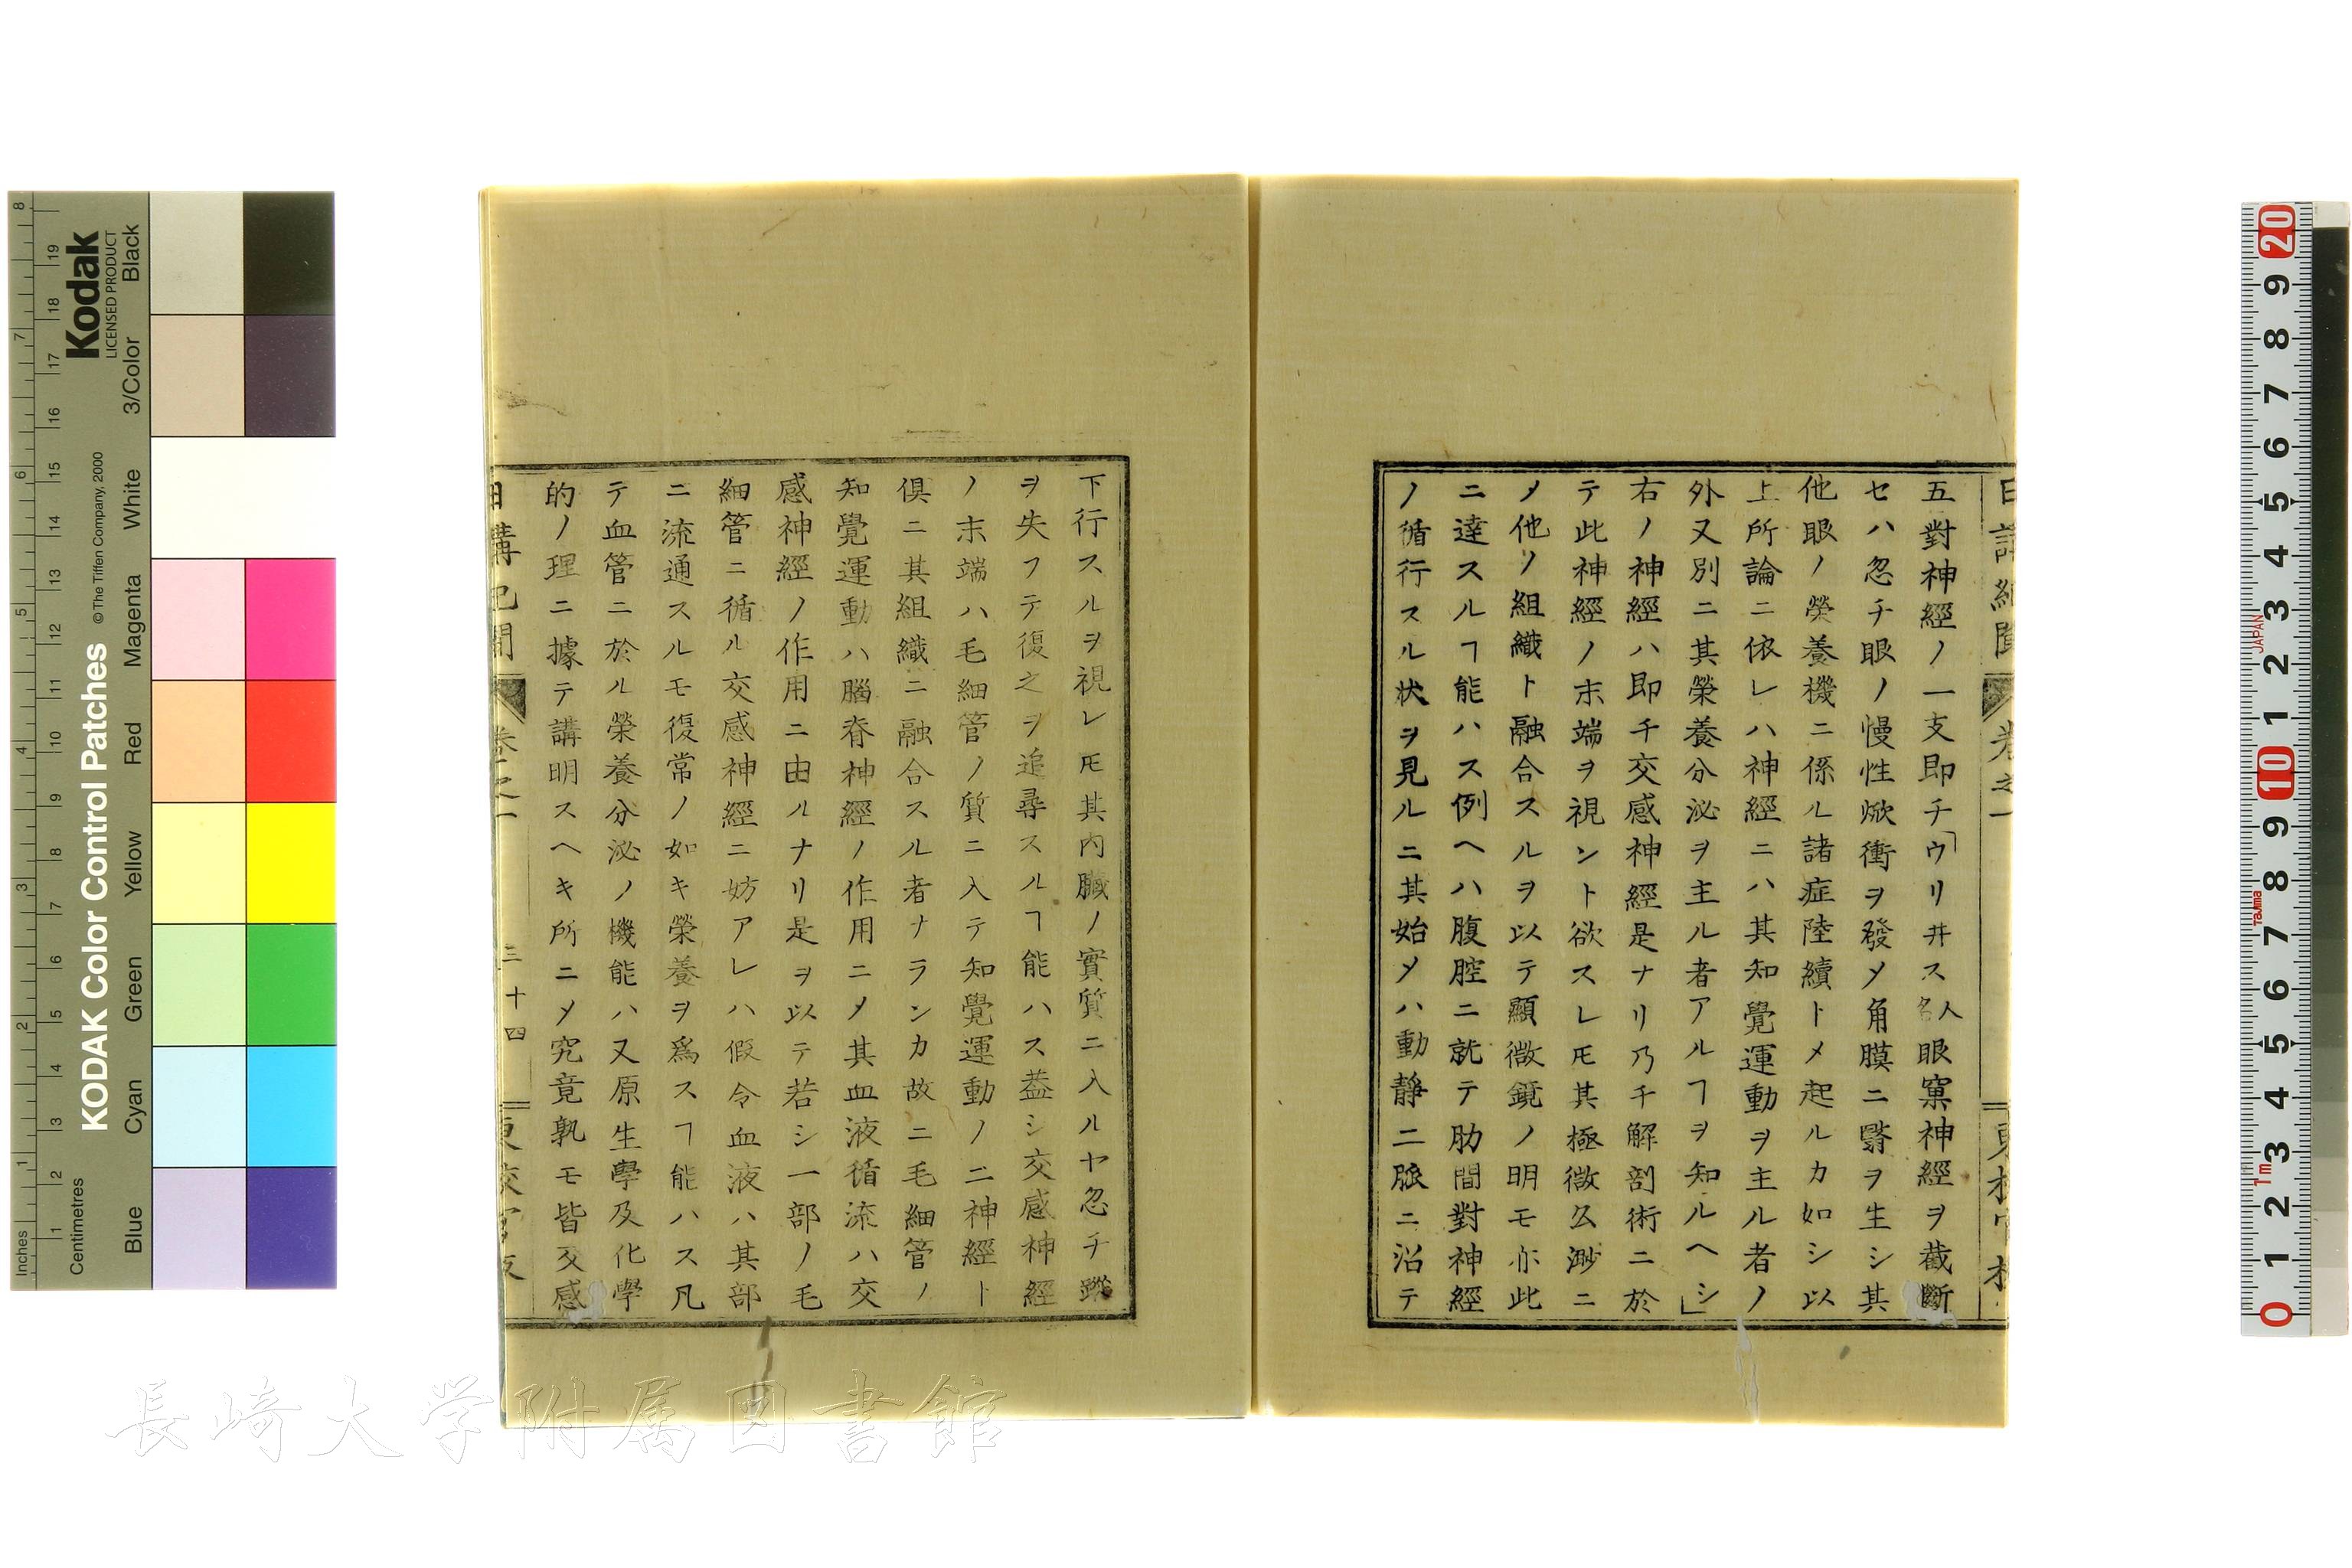 五對神經ノ一支即チ「ウリ井ス人名眼窠神經ヲ截斷
セハ忽チ眼ノ慢性焮衝ヲ發メ角膜ニ翳ヲ生シ其
他眼ノ榮養機ニ係ル諸症陸續トメ起ルカ如シ以
上所論ニ依レハ神經ニハ其知覺運動ヲ主ル者ノ
外又別ニ其榮養分泌ヲ主ル者アルヿヲ知ルヘシ」
右ノ神經ハ即チ交感神經是ナリ乃チ解剖術ニ於
テ此神經ノ末端ヲ視ント欲スレ𪜈其極微幺渺ニ
メ他ノ組織ト融合スルヲ以テ顯微鏡ノ明モ亦此
ニ達スルヿ能ハス例ヘハ腹腔ニ就テ肋間對神經
ノ循行スル状ヲ見ルニ其始メハ動靜二脈ニ沿テ
下行スルヲ視レ𪜈其内臓ノ實質ニ入ルヤ忽チ蹤
ヲ失フテ復之ヲ追尋スルヿ能ハス葢シ交感神經
ノ末端ハ毛細管ノ質ニ入テ知覺運動ノ二神經ト
倶ニ其組織ニ融合スル者ナランカ故ニ毛細管ノ
知覺運動ハ腦脊神經ノ作用ニメ其血液循流ハ交
感神經ノ作用ニ由ルナリ是ヲ以テ若シ一部ノ毛
細管ニ循ル交感神經ニ妨アレハ假令血液ハ其部
ニ流通スルモ復常ノ如キ榮養ヲ爲スヿ能ハス凡
テ血管ニ於ル榮養分泌ノ機能ハ又原生學及化學
的ノ理ニ據テ講明スヘキ所ニメ究竟孰モ皆交感
日講記聞 卷之一 三十四
KODAK Color Control Patches
© The Tiffen Company, 2000
Kodak
LICENSED PRODUCT
Inches
Centimetres
Blue Cyan Green Yellow Red Magenta White 3/Color Black
1 2 3 4 5 6 7 8
1 2 3 4 5 6 7 8 9 10 11 12 13 14 15 16 17 18 19
20 9 8 7 6 5 4 3 2 1 10 9 8 7 6 5 4 3 2 1 0
JAPAN
Tajima
1m
長崎大学附属図書館